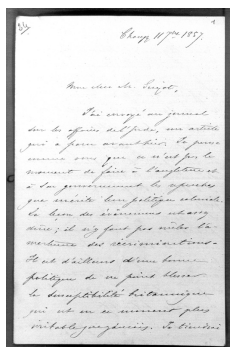 11 7bre 1857.
Mon cher M. Guizot,
J'ai envoyé au journal
sur les affaires de l'Inde, un article
qui a paru avant hier. Je pense
comme vous que ce n'est pas le
moment de faire à l'Angleterre et
à son gouvernement les reproches
que mérite leur politique coloniale.
La leçon des événements est assez
dure; il n'y faut pas mêler l'a-
mertume des récriminations.
Il est d'ailleurs d'une bonne
politique de ne point blesser
la susceptibilité britannique
qui est en ce moment plus
véritable que jamais. Je tiendrai